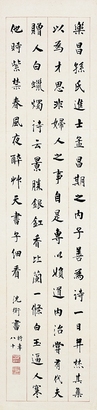 樂昌孫氏進士孟昌期之內子善為詩一日并焚其集
以為才思非婦人之事自是專以婦道內治嘗有代夫
贈人白蠟燭詩云景勝銀釭香比蘭一條白玉逼人寒
他時紫禁春風夜醉草天書子細看
沈衛書
時年八十